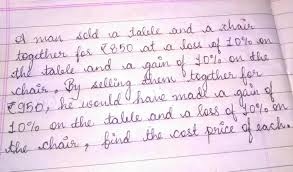 A man sold a table and a chair
together for ₹850 at a loss of 10% on
the table and a gain of 10% on the
chair. By selling them together for
₹950, he would have made a gain of
10% on the table and a loss of 10% on
the chair, find the cost price of each.